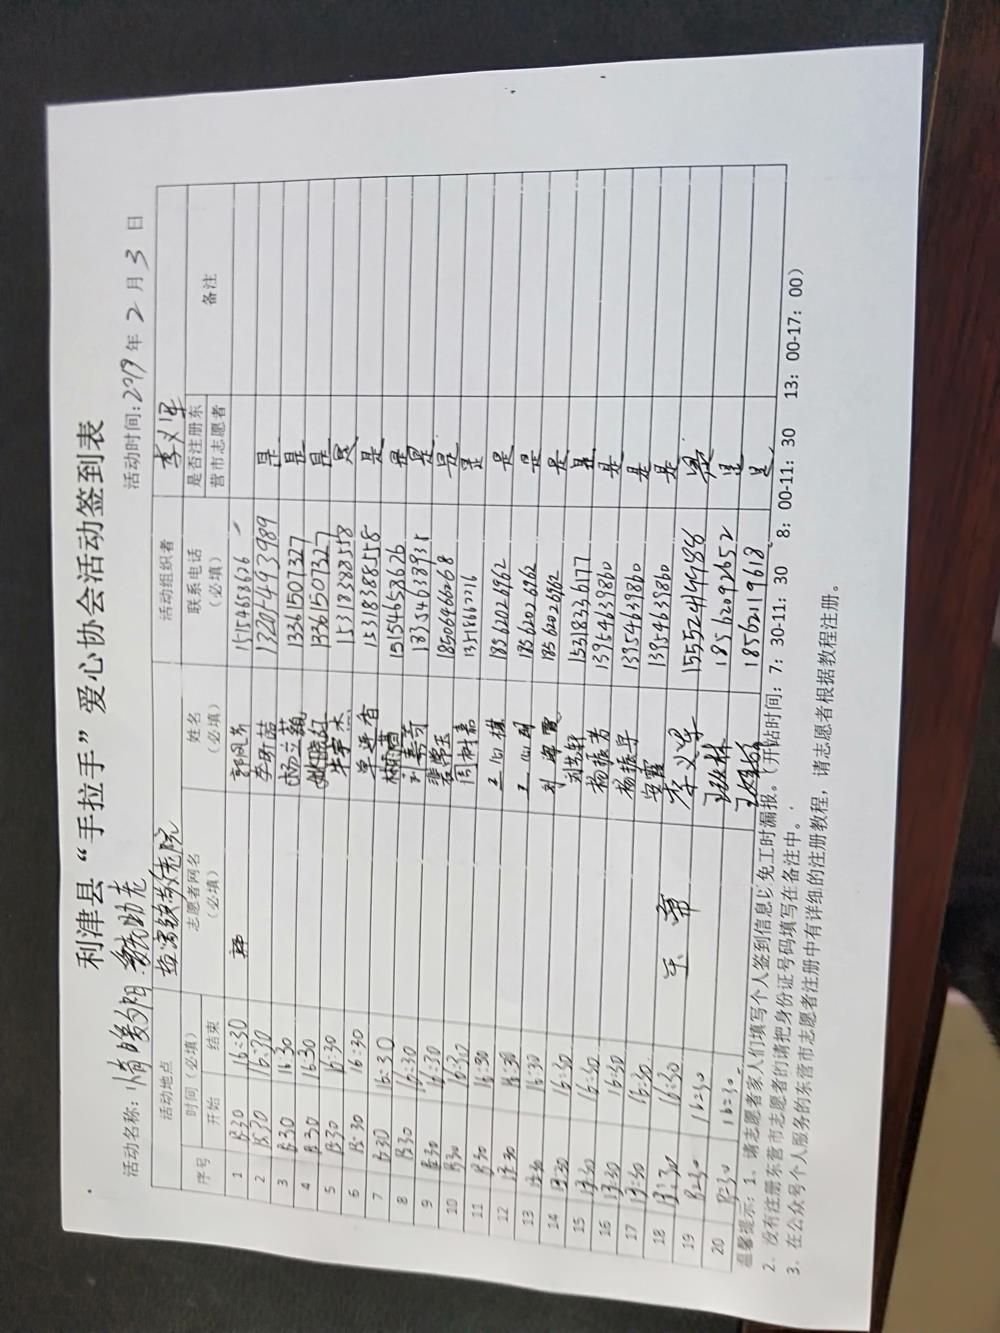 利津县“手拉手”爱心协会活动签到表
活动名称：情暖夕阳 活动时间：2019年2月3日
活动地点 活动组织者 李义军
序号 时间（必填） 志愿者网名（必填） 姓名（必填） 联系电话（必填） 是否注册东营市志愿者 备注
开始 结束
1 13:30 16:30 15154658626
2 13:30 16:30 李昕蓓 13205493989 是
3 13:30 16:30 杨立颖 13361507327 是
4 13:30 16:30 13361507327 是
5 13:30 16:30 15318388558 是
6 13:30 16:30 单连香 15318388558 是
7 13:30 16:30 15154658626 是
8 13:30 16:30 刘嘉奇 是
9 13:30 16:30 是
10 13:30 16:30 周树嘉 是
11 13:30 16:30 王心棋 18562026962 是
12 13:30 16:30 王心 18562026962 是
13 13:30 16:30 刘海霞 18562026962 是
14 13:30 16:30 刘苏轩 15318226177 是
15 13:30 16:30 杨振芳 13954639860 是
16 13:30 16:30 杨振宇 13954639860 是
17 13:30 16:30 安霞 13954639860 是
18 13:30 16:30 李义军 15552414488 是
19 13:30 16:30 18562092652 是
20 13:30 16:30 18562119618 是
温馨提示：1、请志愿者家人们填写个人签到信息以免工时漏报。（开站时间：7：30-11：30 8：00-11：30 13：00-17：00）
2、没有注册东营市志愿者的请把身份证号码填写在备注中。
3、在公众号个人服务的东营市志愿者注册中有详细的注册教程，请志愿者根据教程注册。